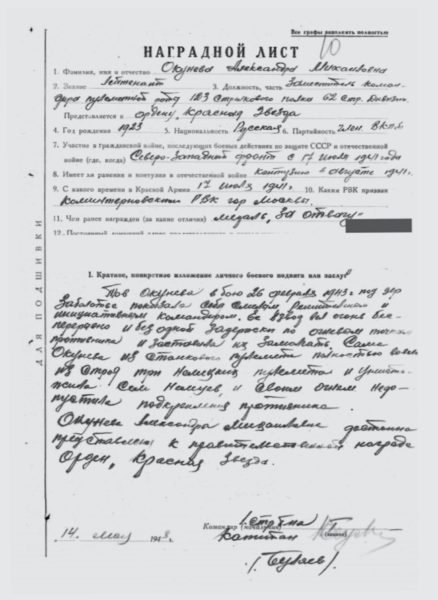 Все графы заполнять полностью
10
НАГРАДНОЙ ЛИСТ
1. Фамилия, имя и отчество Окунева Александра Михайловна
2. Звание Лейтенант 3. Должность, часть Заместитель коман-
дира пулеметной роты 123 Стрелкового полка 62 Стр. Дивизии
Представляется к ордену „Красная Звезда
4. Год рождения 1923 5. Национальность Русская 6. Партийность член ВКП.б
7. Участие в гражданской войне, последующих боевых действиях по защите СССР и отечественной
войне (где, когда) Северо-Западный фронт с 17 июля 1941 года
8. Имеет ли ранения и контузии в отечественной войне контузию в августе 1941 г.
9. С какого времени в Красной Армии 17 июля 1941 г. 10. Каким РВК призван
Коминтерновским РВК гор Москвы.
11. Чем ранее награжден (за какие отличия) медаль „За отвагу
ДЛЯ ПОДШИВКИ
I. Краткое, конкретное изложение личного боевого подвига или заслуг
Тов Окунева в бою 26 февраля 1943 г под дер
показала себя смелым, решительным и
инициативным командиром. Ее взвод вел огонь бес-
перерывно и без одной задержки по огневым точкам
противника и заставлял их замолкать. Сама
Окунева из станкового пулемета полностью вывела
из строя три немецких пулемета и уничто-
жила семь немцев, и своим огнем недо-
пустила подкрепления противника.
Окунева Александра Михайловна достойна
представления к правительственной награде
Орден „Красная Звезда.
Командир (начальник)
Капитан
14 мая 1943 г.